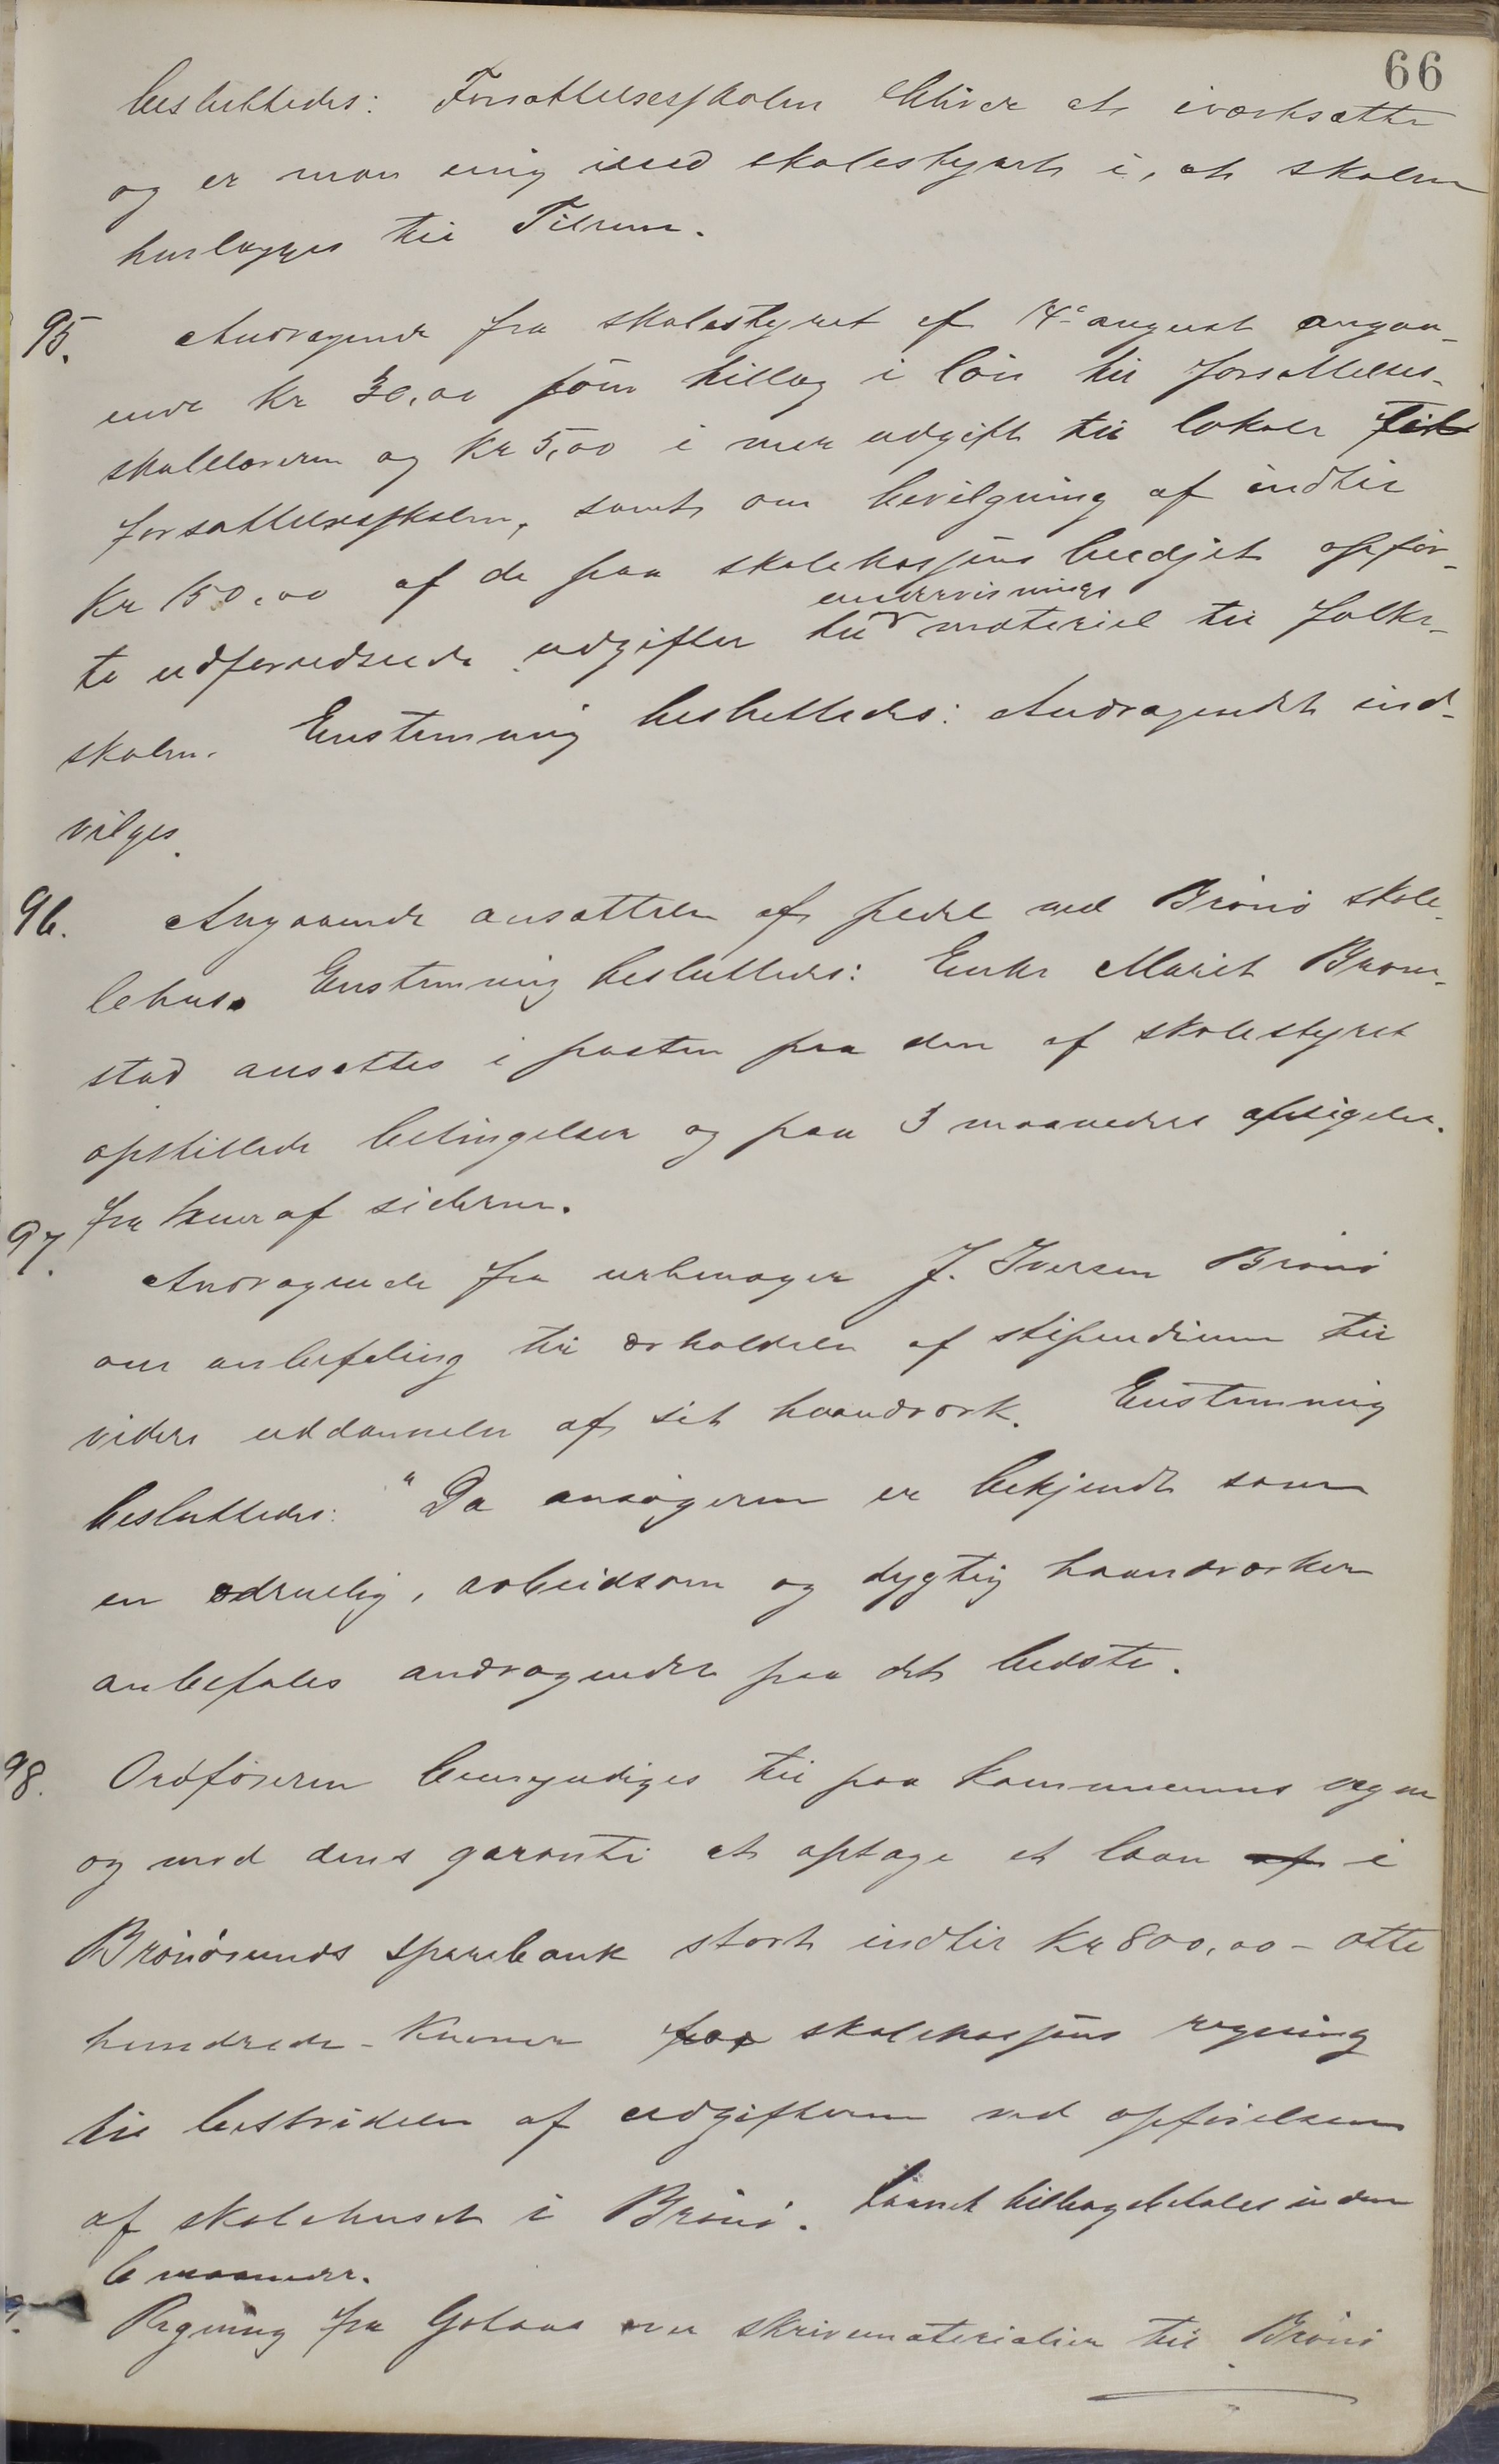 66
besluttedes: Forsættelsesskolen bliver at iværksætte
og er man enig med skolestyret i, at skolen
henlægges til Tilrem.
95. Andragende fra skolestyret af 14de august angaa-
ende Kr 30,00 som tillæg i løn til forsættelses-
skolelæreren og Kr 5,00 i mer udgift til lokale til
forsættelsesskolen, samt om bevilgning af indtil
Kr 150,00 af de paa skolekassens budjet opfør-
undervisnings
te uforudseede udgifter til materiel til folke-
skolen. Enstemmig besluttedes: Andragendet ind-
vilges.
96. Angaaende ansættelse af pedel ved Brönö skole-
lehus. Enstemmig besluttedes: Enke Marit Brem-
stad ansættes i posten paa den af skolestyret
opstillede betingelser og paa 3 maaneders opsigelse
fra hver af siderne.
97. Andragende fra urmager J. Iversen Brönö
om anbefaling til erholdelse af stipendium til
videre uddannelse af sit haandværk. Enstemmig
besluttedes: "Da ansøgeren er bekjendt som
en ædruelig, arbeidsom og dygtig haandværker
anbefales andragendet paa det bedste.
98. Ordføreren bemyndiges til paa kommunens vegne
og med dens garanti at optage et laan af i
Brönösunds sparebank stort indtil Kr 800,00 - otte
hundrede - Kroner for skolekassens regning
til bestridelse af udgifterne ved opførelsen
af skolehuset i Brönö. Laanet tilbagebetales inden
6 maaneder.
Regning fra over skrivematerialier til Brönö